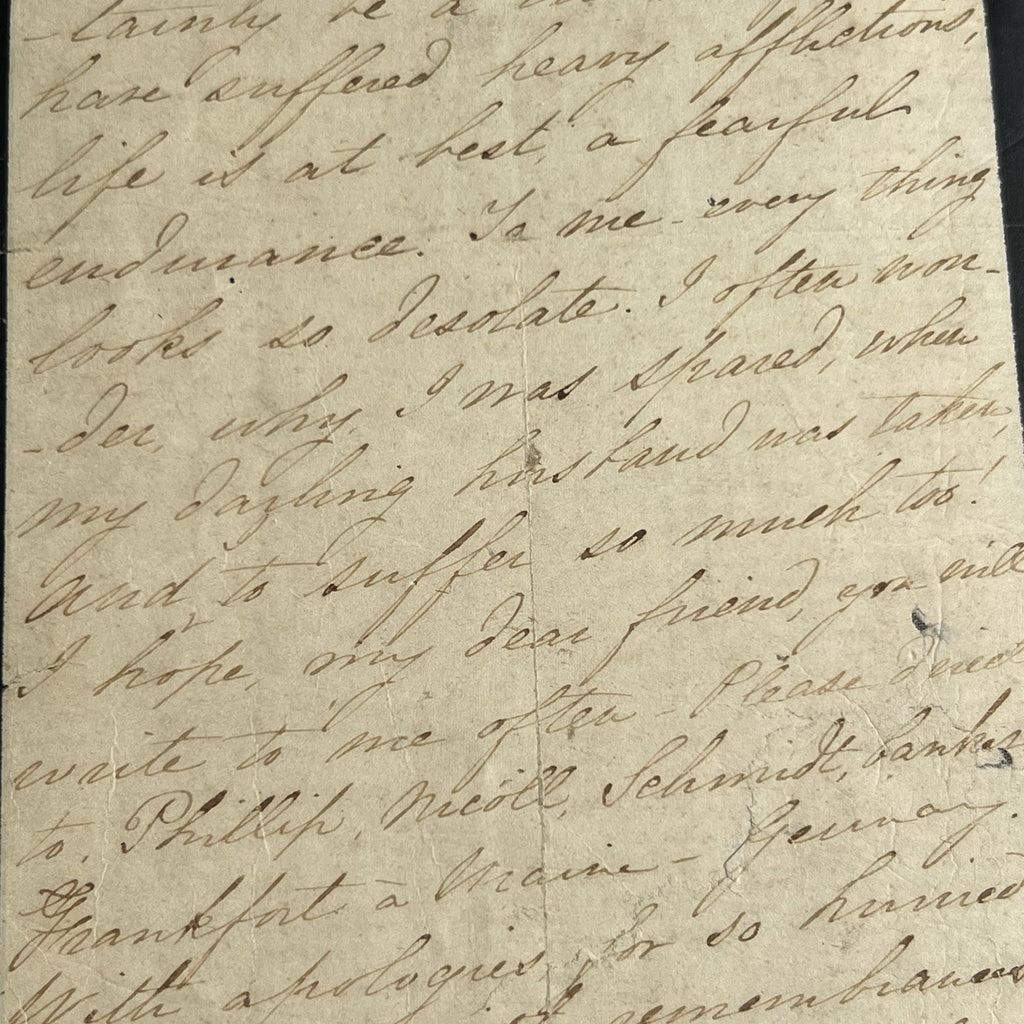 -tainly be a
have suffered heavy afflictions,
life is at best, a fearful
endurance. To me - every thing
looks so desolate. I often won-
-der, why, I was spared, when
my darling husband was taken,
and, to suffer so much too!
I hope, my dear friend, you will
write to me often - Please direct
to, Phillip, Nicoll, Schmidt, banker
Frankfort a Maine - Germay.
With apologies, for so hurried
of remembrances